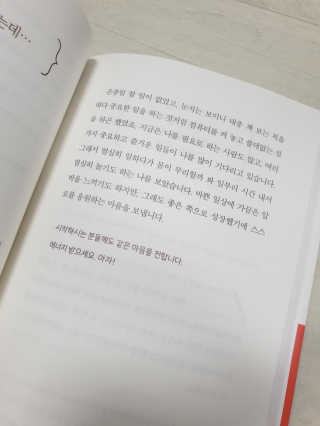 는데…
온종일 할 일이 없었고, 눈치는 보이니 대충 책 보는 척을
하다 중요한 일을 하는 것처럼 컴퓨터를 켜 놓고 쓸데없는 짓
을 하곤 했었죠. 지금은 나를 필요로 하는 사람도 많고, 여러
가지 중요하고 즐거운 일들이 나를 많이 기다리고 있습니다.
그래서 열심히 일하다가 몸이 무리할까 봐 일부러 시간 내서
열심히 놀기도 하는 나를 보았습니다. 바쁜 일상에 가끔은 압
박을 느끼기도 하지만, 그래도 좋은 쪽으로 성장했기에 스스
로를 응원하는 마음을 보냅니다.
시작하시는 분들께도 같은 마음을 전합니다.
에너지 받으세요. 아자!